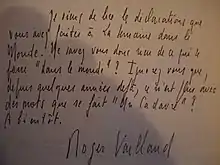 Je viens de lire les déclarations que
vous avez faites à la Semaine dans le
Monde. Ne savez vous donc rien de ce qui se
passe "dans le monde"? Ignorez vous que,
depuis quelques années déjà, ce n'est plus avec
des mots que se fait "Un Cadavre"?
A bientôt.
Roger Vailland